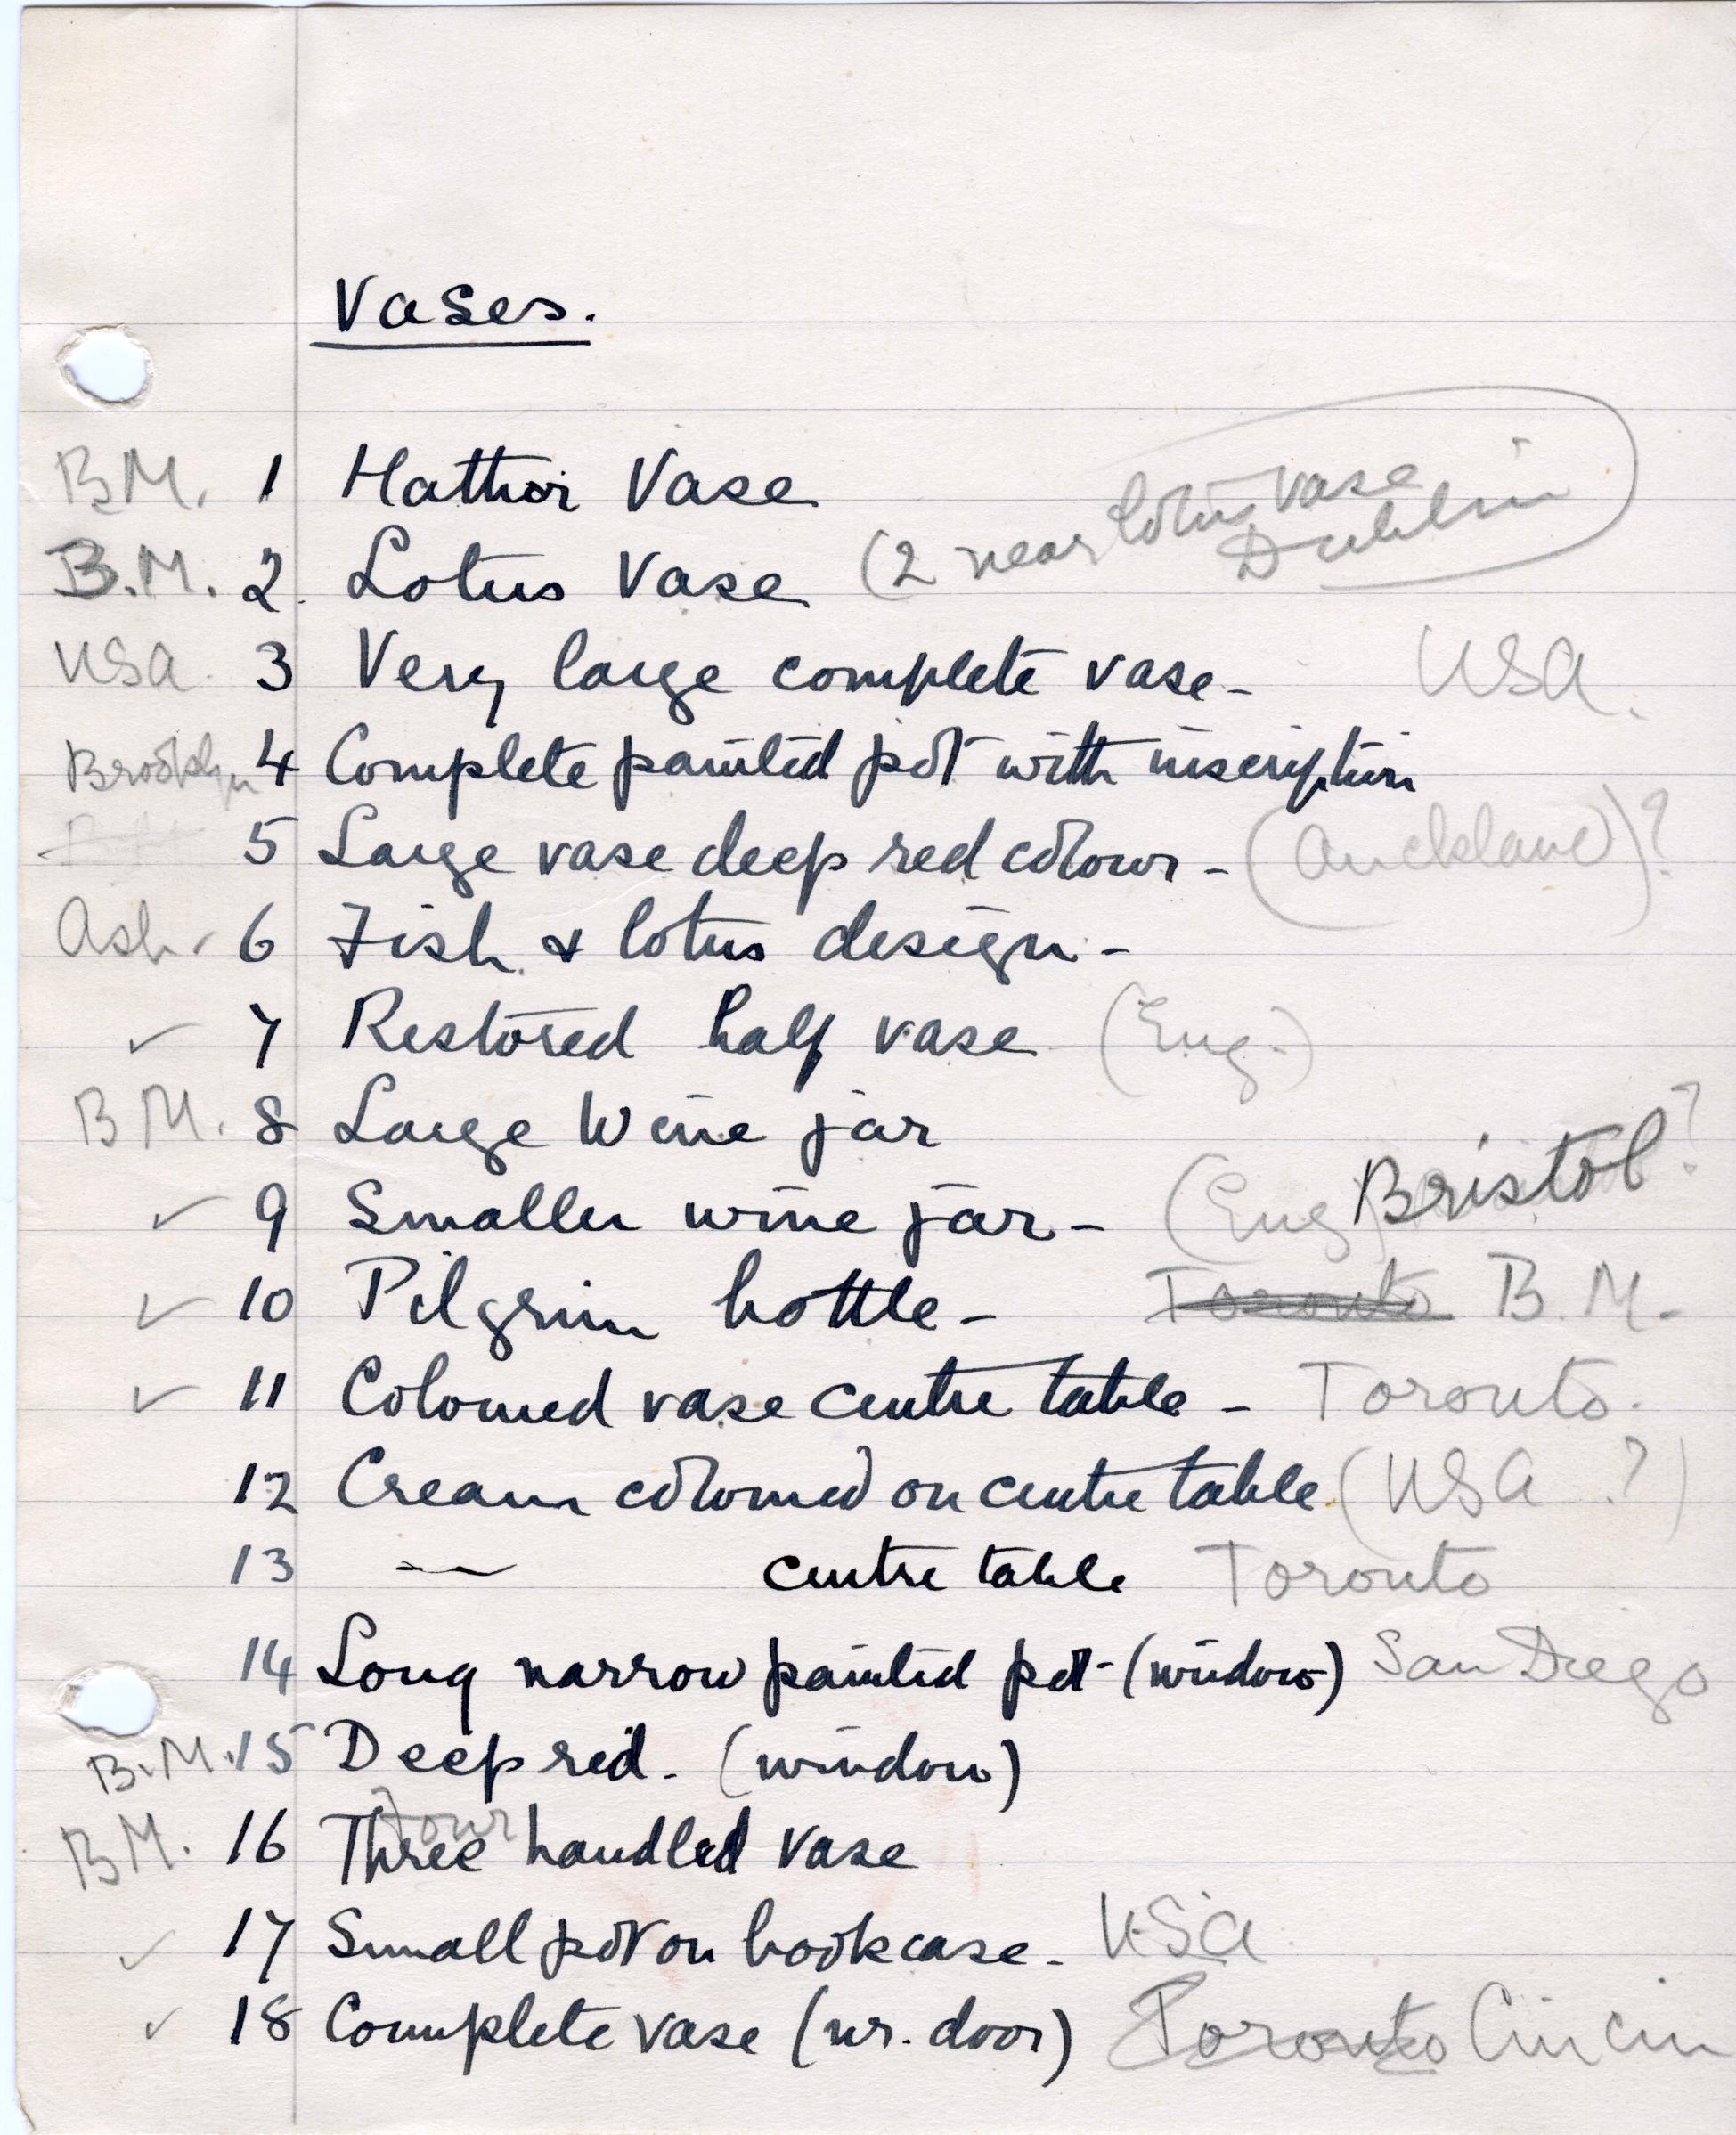 Vases.
B.M. 1 Hathor Vase
B.M. 2. Lotus Vase (2 near lotus vase Dublin)
USA. 3 Very large complete vase - USA.
Brooklyn 4 Complete painted pot with inscription
5 Large vase deep red colour - (Auckland)?
Ash. 6 Fish & lotus design -
✓ 7 Restored half vase (Eng.)
B M. 8 Large Wine jar
✓ 9 Smaller wine jar - (Eng) Bristol?
✓ 10 Pilgrim bottle - Toronto B.M.
✓ 11 Coloured vase centre table - Toronto.
12 Cream coloured on centre table (USA ?)
13 — centre table Toronto
14 Long narrow painted pot - (window) San Diego
B.M. 15 Deep red - (window)
four
B.M. 16 Three handled vase
✓ 17 Small pot on bookcase - USA
✓ 18 Complete vase (nr. door) Toronto Cincin